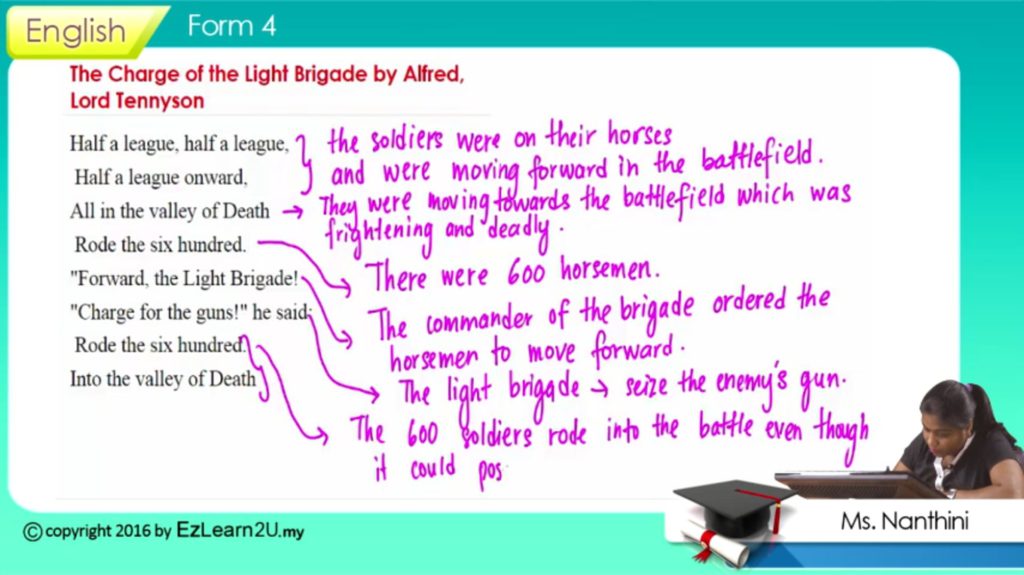 English
Form 4
The Charge of the Light Brigade by Alfred,
Lord Tennyson
Half a league, half a league,
Half a league onward,
All in the valley of Death
Rode the six hundred.
"Forward, the Light Brigade!
"Charge for the guns!" he said:
Rode the six hundred.
Into the valley of Death
the soldiers were on their horses
and were moving forward in the battlefield.
They were moving towards the battlefield which was
frightening and deadly.
There were 600 horsemen.
The commander of the brigade ordered the
horsemen to move forward.
The light brigade → seize the enemy's gun.
The 600 soldiers rode into the battle even though
it could pos
© copyright 2016 by EzLearn2U.my
Ms. Nanthini